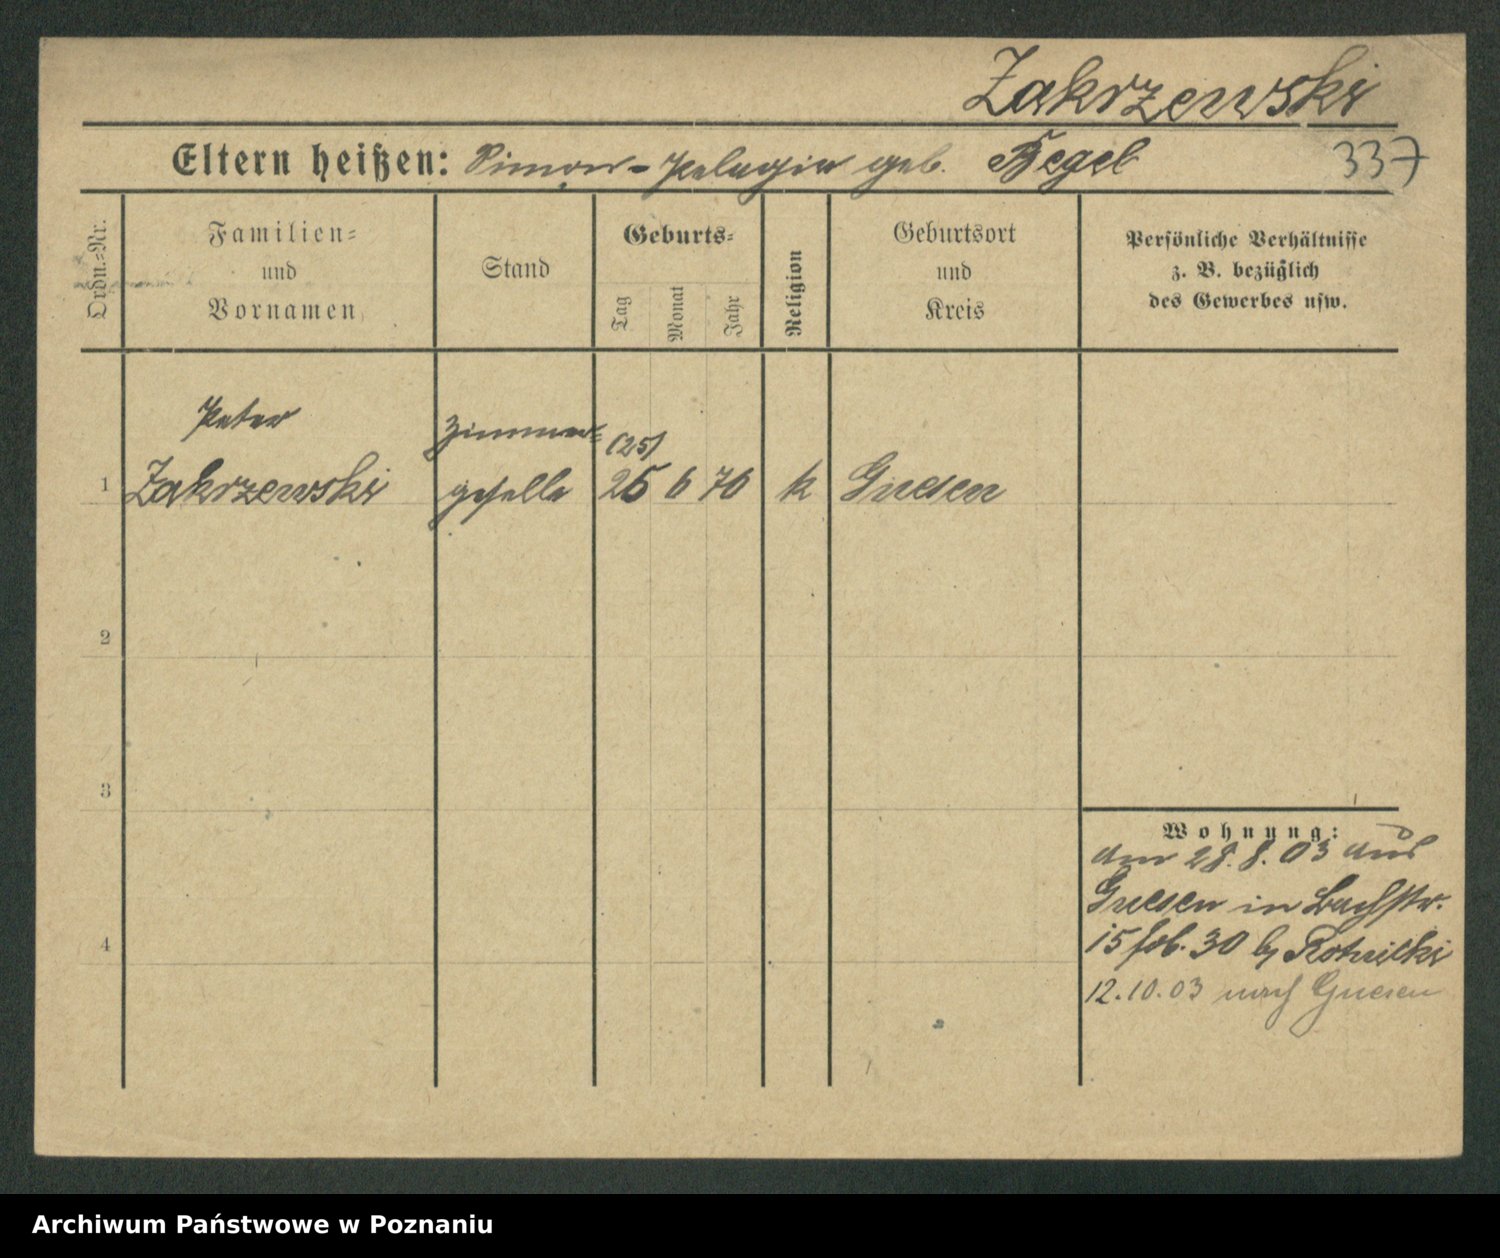 Zakrzewski
337
Eltern heißen: Simon - Pelagia geb. Begel
Ordn.-Nr.
Familien-
und
Vornamen
Stand
Geburts-
Tag
Monat
Jahr
Religion
Geburtsort
und
Kreis
Persönliche Verhältnisse
z. B. bezüglich
des Gewerbes usw.
Peter
Zimmer-
(25)
1 Zakrzewski geselle 25 6 76 k Gnesen
2
3
4
Wohnung:
am 28.8.03 aus
Gnesen in Bachstr.
15 fob. 30 by
12.10.03 nach Gnesen
Archiwum Państwowe w Poznaniu